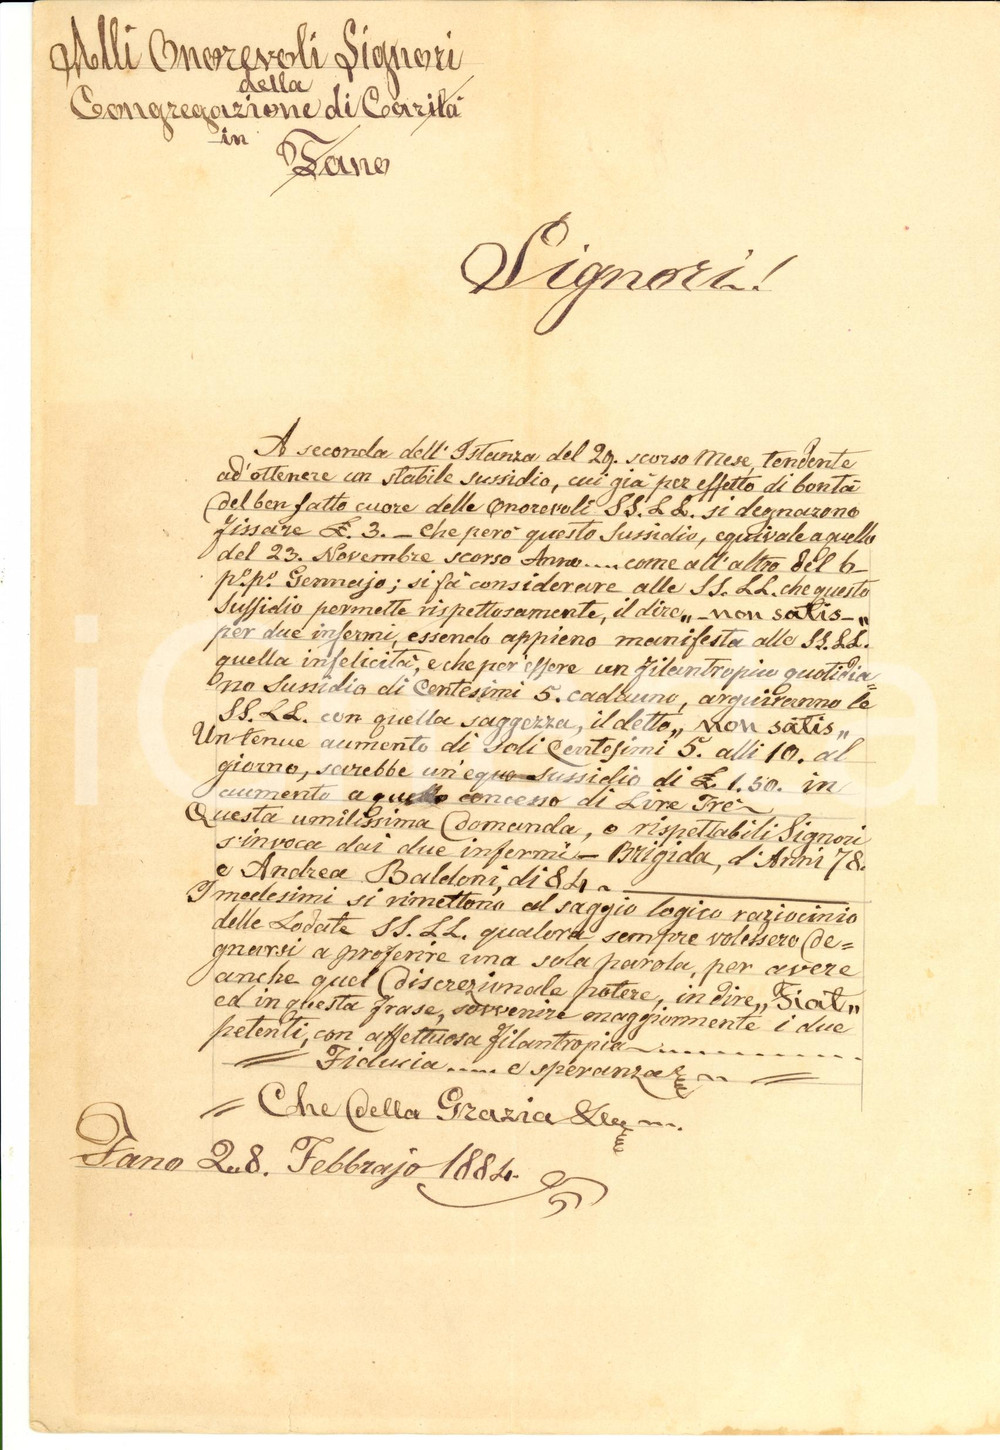 Alli Onorevoli Signori
della
Congregazione di Carità
in
Fano
Signori!
A seconda dell'Istanza del 29. scorso Mese, tendente
ad'ottenere un stabile sussidio, cui già per effetto di bontà
del ben fatto cuore delle Onorevoli SS. LL. si degnarono
fissare £. 3. — Che però questo Sussidio, equivale a quello
del 23. Novembre scorso Anno .... come all'altro del 6
pº. pº. Gennajo; si fà considerare alle SS. LL. che questo
Sussidio permette rispettosamente, il dire „ — non satis — „
per due infermi, essendo appieno manifesta alle SS. LL.
quella infelicità, e che per essere un filantropico quotidia=
no Sussidio di Centesimi 5. cadauno, arguiranno le
SS. LL. con quella saggezza, il detto „ non satis „
Un tenue aumento di soli Centesimi 5. alli 10. al
giorno, sarebbe un'equo sussidio di £. 1.50. in
aumento a quello concesso di Lire Tre
Questa umilissima domanda, o rispettabili Signori
s'invoca dai due infermi — Brigida, d'Anni 78.
e Andrea Baldoni, di 84
I medesimi si rimettono al saggio logico raziocinio
delle Lodate SS. LL. qualora sempre volessero de=
gnarsi a proferire una sola parola, per avere
anche quel discrezionale potere, in dire „ Fiat „
ed in questa frase, sovvenire maggiormente i due
petenti, con affettuosa filantropia
Fiducia .... e speranza
Che della Grazia
Fano 28. Febbrajo 1884.